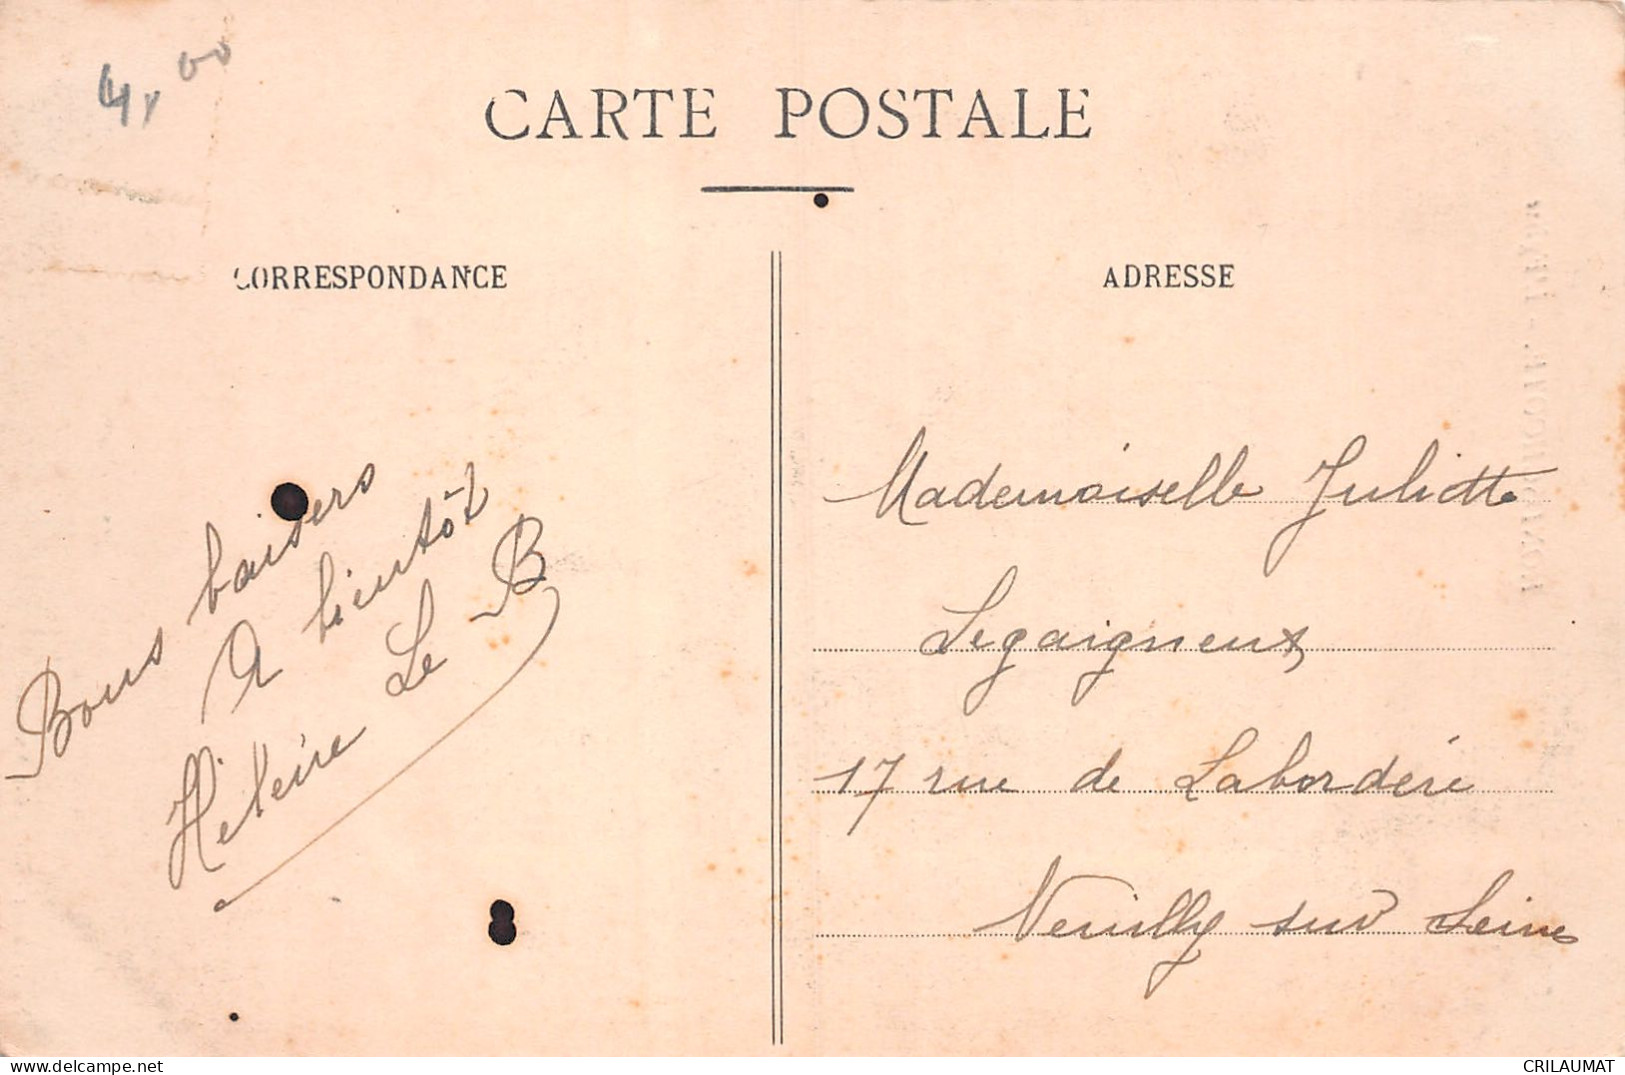 4,00
CARTE POSTALE
CORRESPONDANCE
ADRESSE
Bons baisers
A bientôt
Le B
Mademoiselle Juliette
Legaigneux
17 rue de Labordère
Neuilly sur Seine
www.delcampe.net
CRILAUMAT